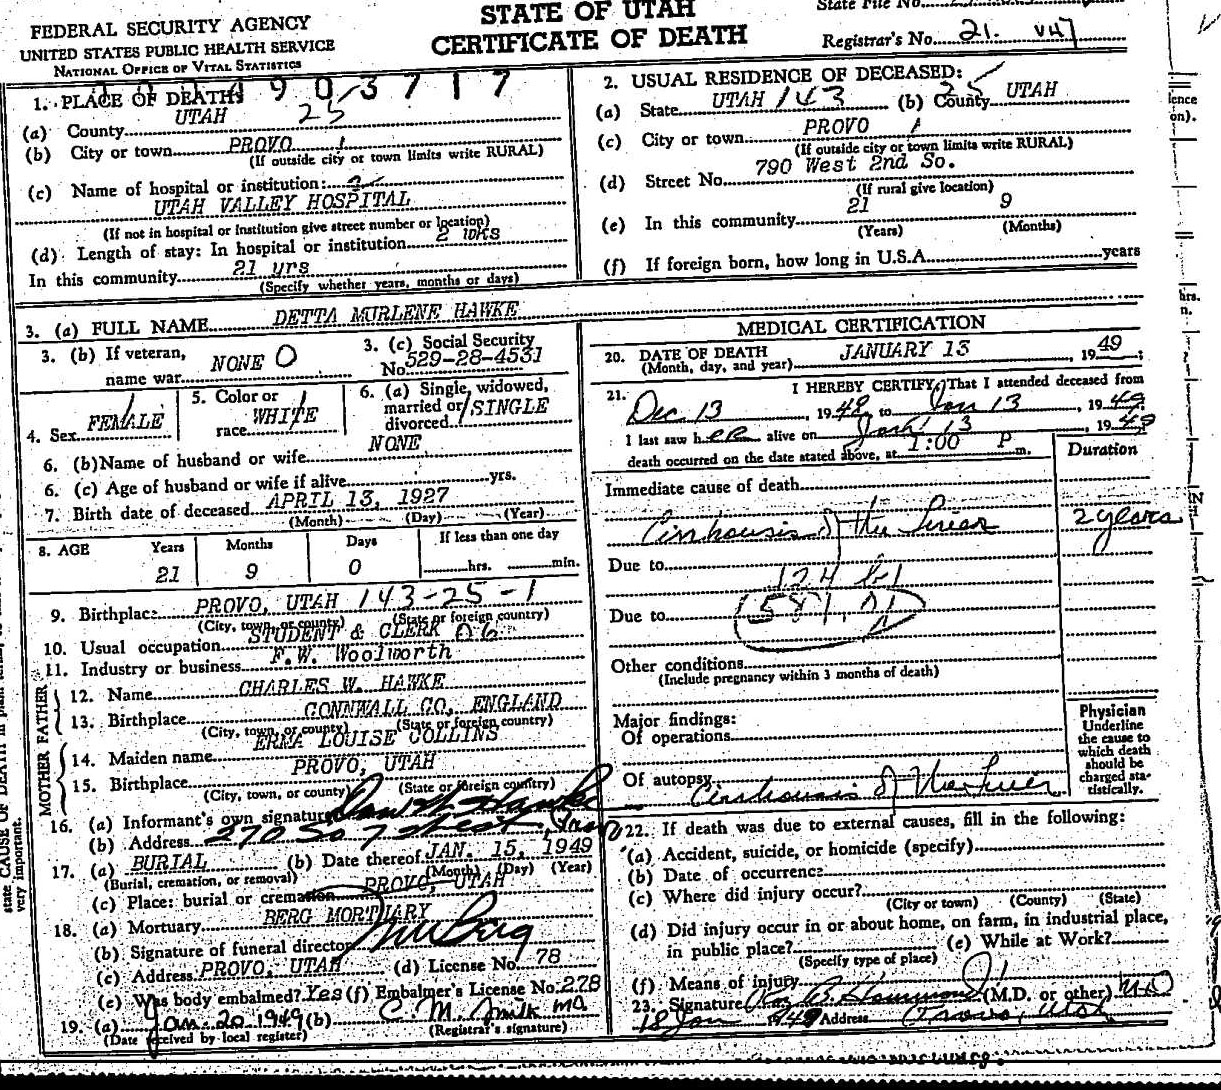 FEDERAL SECURITY AGENCY
UNITED STATES PUBLIC HEALTH SERVICE
NATIONAL OFFICE OF VITAL STATISTICS
STATE OF UTAH
CERTIFICATE OF DEATH
State File No.
Registrar's No. 21.
490 3717
1. PLACE OF DEATH:
(a) County UTAH 25
(b) City or town PROVO 1
(If outside city or town limits write RURAL)
(c) Name of hospital or institution: 2
UTAH VALLEY HOSPITAL
(If not in hospital or institution give street number or location)
(d) Length of stay: In hospital or institution 2 wks
In this community 21 yrs
(Specify whether years, months or days)
2. USUAL RESIDENCE OF DECEASED:
(a) State UTAH 143 (b) County 25 UTAH
(c) City or town PROVO 1
(If outside city or town limits write RURAL)
(d) Street No. 790 West 2nd So.
(If rural give location)
(e) In this community 21 9
(Years) (Months)
(f) If foreign born, how long in U.S.A. years
3. (a) FULL NAME DETTA MURLENE HAWKE
3. (b) If veteran, name war NONE 0
3. (c) Social Security No. 529-28-4531
4. Sex FEMALE
5. Color or race WHITE
6. (a) Single, widowed, married or divorced SINGLE
6. (b) Name of husband or wife NONE
6. (c) Age of husband or wife if alive yrs.
7. Birth date of deceased APRIL 13, 1927
(Month) (Day) (Year)
8. AGE Years Months Days If less than one day
21 9 0 hrs. min.
9. Birthplace PROVO, UTAH 143-25-1
(City, town, or county) (State or foreign country)
10. Usual occupation STUDENT & CLERK 06
11. Industry or business F.W. Woolworth
FATHER
12. Name CHARLES W. HAWKE
13. Birthplace CONNWALL CO, ENGLAND
(City, town, or county) (State or foreign country)
MOTHER
14. Maiden name ERMA LOUISE COLLINS
15. Birthplace PROVO, UTAH
(City, town, or county) (State or foreign country)
16. (a) Informant's own signature Hawke
(b) Address 270 So 7 West
17. (a) BURIAL (b) Date thereof JAN. 15, 1949
(Burial, cremation, or removal) (Month) (Day) (Year)
(c) Place: burial or cremation PROVO, UTAH
18. (a) Mortuary BERG MORTUARY
(b) Signature of funeral director Berg
(c) Address PROVO, UTAH (d) License No. 78
(e) Was body embalmed? Yes (f) Embalmer's License No. 278
19. (a) Jan. 20 1949 (b) C. M. Smith MD
(Date received by local register) (Registrar's signature)
MEDICAL CERTIFICATION
20. DATE OF DEATH JANUARY 13, 1949;
(Month, day, and year)
21. I HEREBY CERTIFY, That I attended deceased from
Dec 13, 1948 to Jan 13, 1949
I last saw her alive on Jan 13, 1949
death occurred on the date stated above, at 1:00 P m.
Duration
Immediate cause of death
Cirrhousis of the Liver 2 years
Due to
124 b1
Due to 581,
Other conditions
(Include pregnancy within 3 months of death)
Major findings:
Of operations
Of autopsy Cirrhousis of the Liver
Physician
Underline
the cause to
which death
should be
charged sta-
tistically.
22. If death was due to external causes, fill in the following:
(a) Accident, suicide, or homicide (specify)
(b) Date of occurrence
(c) Where did injury occur?
(City or town) (County) (State)
(d) Did injury occur in or about home, on farm, in industrial place,
in public place? (e) While at Work?
(Specify type of place)
(f) Means of injury
23. Signature Hammond (M.D. or other) MD
18 Jan 1949 Address Provo, Utah
state CAUSE OF DEATH in plain
very important.